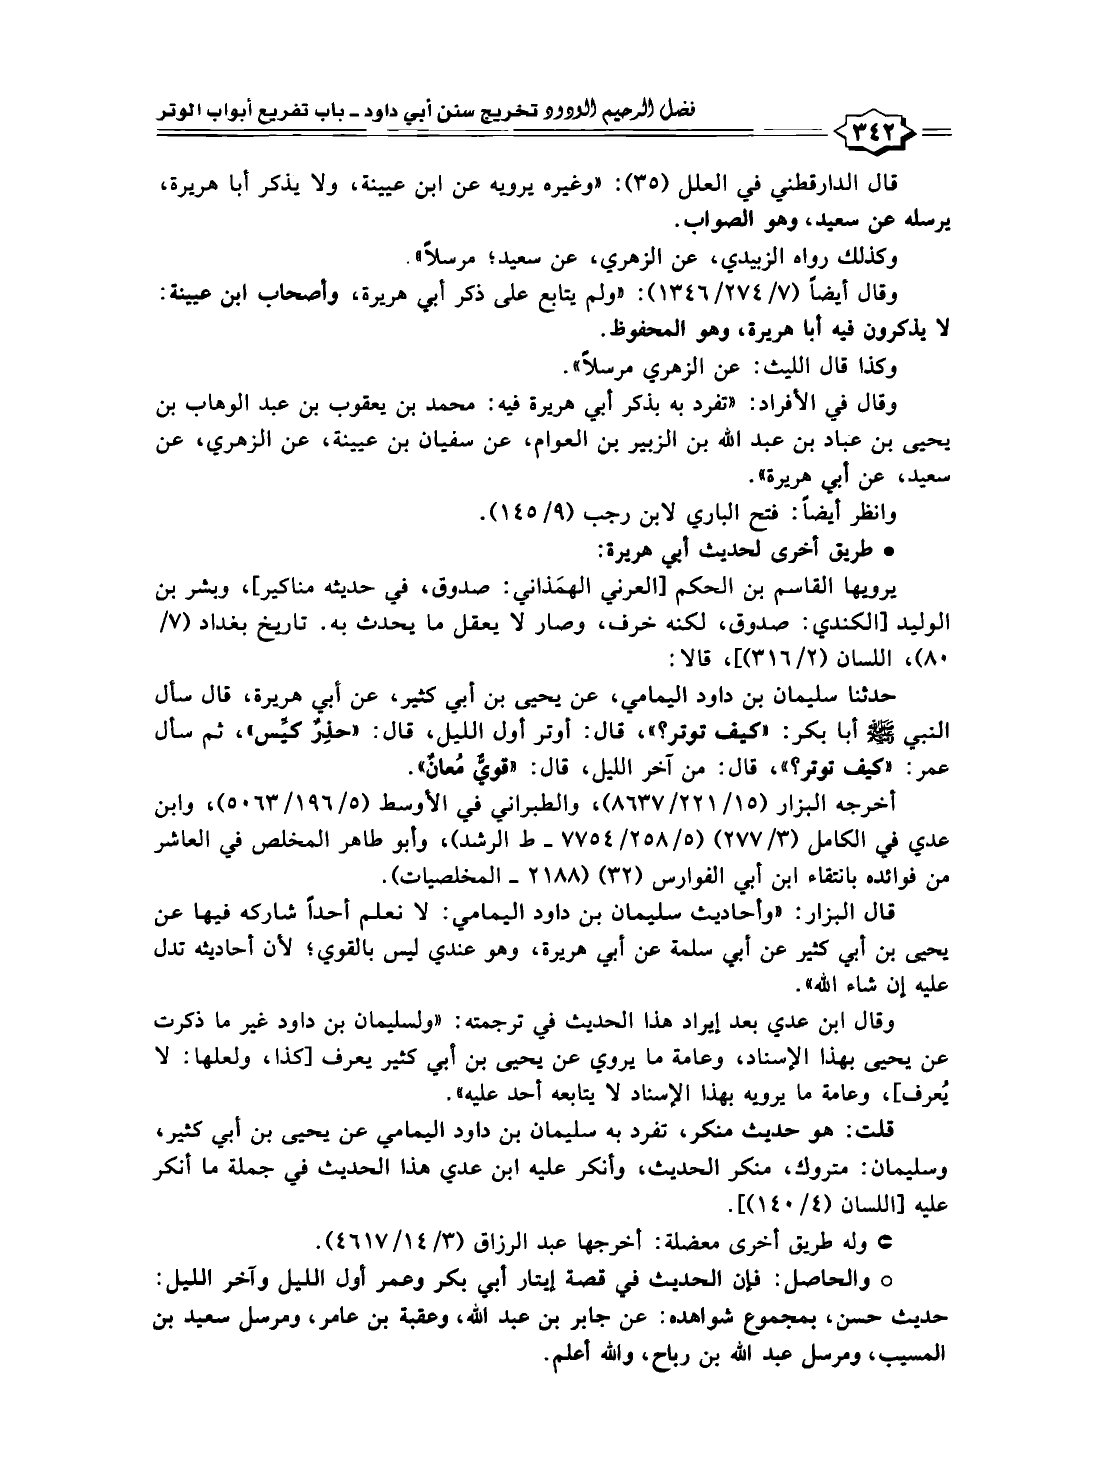 فضل الرحيم الودود تخريج سنن أبي داود ـ باب تفريع أبواب الوتر
٣٤٢
قال الدارقطني في العلل (٣٥): «وغيره يرويه عن ابن عيينة، ولا يذكر أبا هريرة،
يرسله عن سعيد، وهو الصواب.
وكذلك رواه الزبيدي، عن الزهري، عن سعيد؛ مرسلاً».
وقال أيضاً (١٣٤٦/٢٧٤/٧): «ولم يتابع على ذكر أبي هريرة، وأصحاب ابن عيينة:
لا يذكرون فيه أبا هريرة، وهو المحفوظ.
وكذا قال الليث: عن الزهري مرسلاً».
وقال في الأفراد: «تفرد به بذكر أبي هريرة فيه: محمد بن يعقوب بن عبد الوهاب بن
يحيى بن عباد بن عبد الله بن الزبير بن العوام، عن سفيان بن عيينة، عن الزهري، عن
سعيد، عن أبي هريرة».
وانظر أيضاً: فتح الباري لابن رجب (١٤٥/٩).
• طريق أخرى لحديث أبي هريرة:
يرويها القاسم بن الحكم [العرني الهمَذاني: صدوق، في حديثه مناكير]، وبشر بن
الوليد [الكندي: صدوق، لكنه خرف، وصار لا يعقل ما يحدث به. تاريخ بغداد (٧/
٨٠)، اللسان (٣١٦/٢)]، قالا:
حدثنا سليمان بن داود اليمامي، عن يحيى بن أبي كثير، عن أبي هريرة، قال سأل
النبي ﷺ أبا بكر: «كيف توتر؟»، قال: أوتر أول الليل، قال: «حذِرٌ كيِّس»، ثم سأل
عمر: «كيف توتر؟»، قال: من آخر الليل، قال: «قويٌّ مُعانٌ».
أخرجه البزار (٨٦٣٧/٢٢١/١٥)، والطبراني في الأوسط (٥٠٦٣/١٩٦/٥)، وابن
عدي في الكامل (٢٧٧/٣) (٧٧٥٤/٢٥٨/٥ ـ ط الرشد)، وأبو طاهر المخلص في العاشر
من فوائده بانتقاء ابن أبي الفوارس (٣٢) (٢١٨٨ ـ المخلصيات).
قال البزار: «وأحاديث سليمان بن داود اليمامي: لا نعلم أحداً شاركه فيها عن
يحيى بن أبي كثير عن أبي سلمة عن أبي هريرة، وهو عندي ليس بالقوي؛ لأن أحاديثه تدل
عليه إن شاء الله».
وقال ابن عدي بعد إيراد هذا الحديث في ترجمته: «ولسليمان بن داود غير ما ذكرت
عن يحيى بهذا الإسناد، وعامة ما يروي عن يحيى بن أبي كثير يعرف [كذا، ولعلها: لا
يُعرف]، وعامة ما يرويه بهذا الإسناد لا يتابعه أحد عليه».
قلت: هو حديث منكر، تفرد به سليمان بن داود اليمامي عن يحيى بن أبي كثير،
وسليمان: متروك، منكر الحديث، وأنكر عليه ابن عدي هذا الحديث في جملة ما أنكر
عليه [اللسان (١٤٠/٤)].
⊂ وله طريق أخرى معضلة: أخرجها عبد الرزاق (٤٦١٧/١٤/٣).
○ والحاصل: فإن الحديث في قصة إيتار أبي بكر وعمر أول الليل وآخر الليل:
حديث حسن، بمجموع شواهده: عن جابر بن عبد الله، وعقبة بن عامر، ومرسل سعيد بن
المسيب، ومرسل عبد الله بن رباح، والله أعلم.